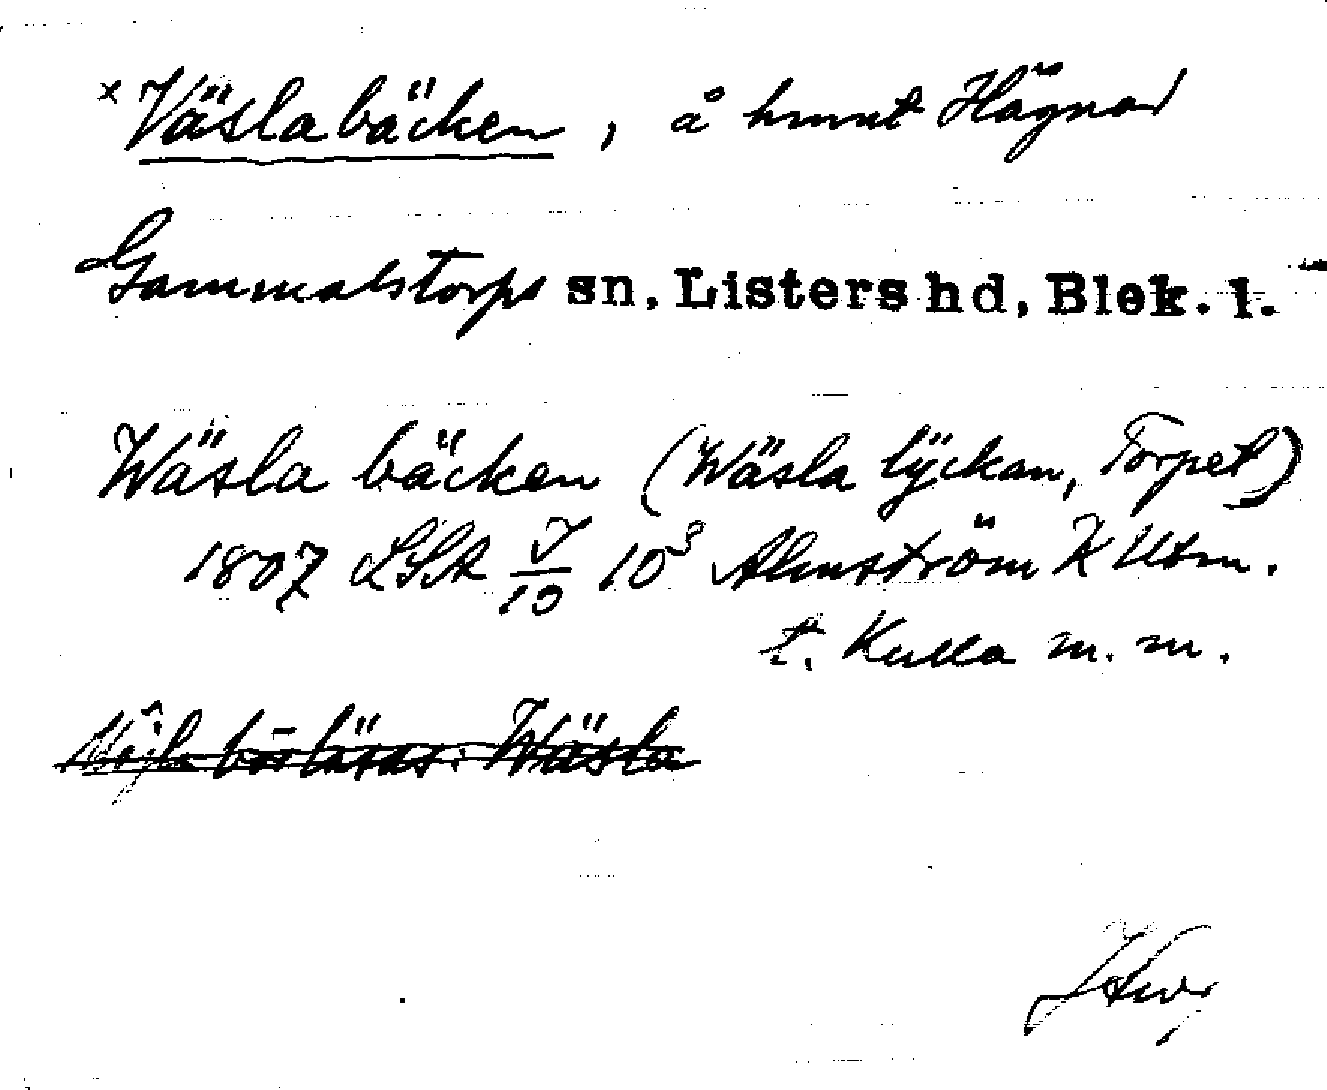 x Väslabäcken, å hmnt Hägnad
Gammalstorps sn, Listers hd, Blek. l.
Wäsla bäcken (Wäsla lyckan, Torpet)
1807 LSA J/10 10³ Almström K Utm.
t. Kulla m. m.
bör läsas: Wäsla